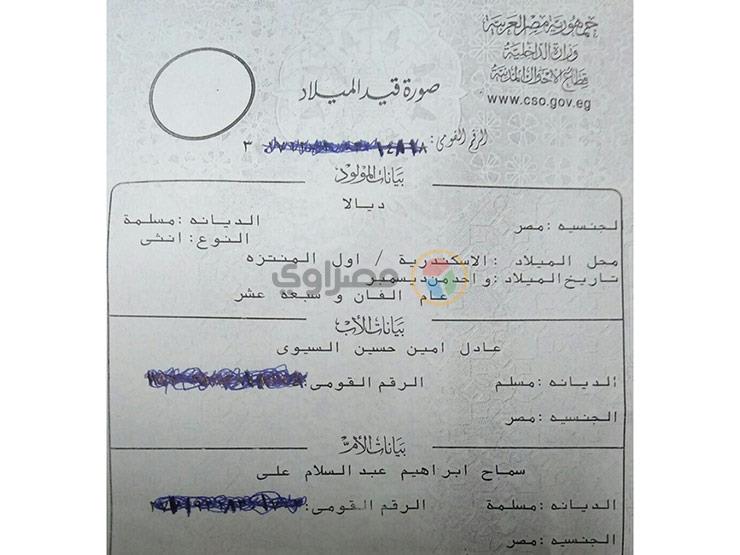 جمهورية مصر العربية
وزارة الداخلية
قطاع الأحوال المدنية
www.cso.gov.eg
صورة قيد الميلاد
الرقم القومى:
بيانات المولود
ديالا
لجنسيه :مصر الديانه :مسلمة
النوع: انثى
محل الميلاد :الاسكندرية / اول المنتزه
تاريخ الميلاد :واحد من ديسمبر
عام الفان و سبعه عشر
مصراوي
بيانات الأب
عادل امين حسين السيوى
الديانه :مسلم الرقم القومى:
الجنسيه :مصر
بيانات الأم
سماح ابراهيم عبد السلام على
الديانه :مسلمة الرقم القومى:
الجنسيه :مصر